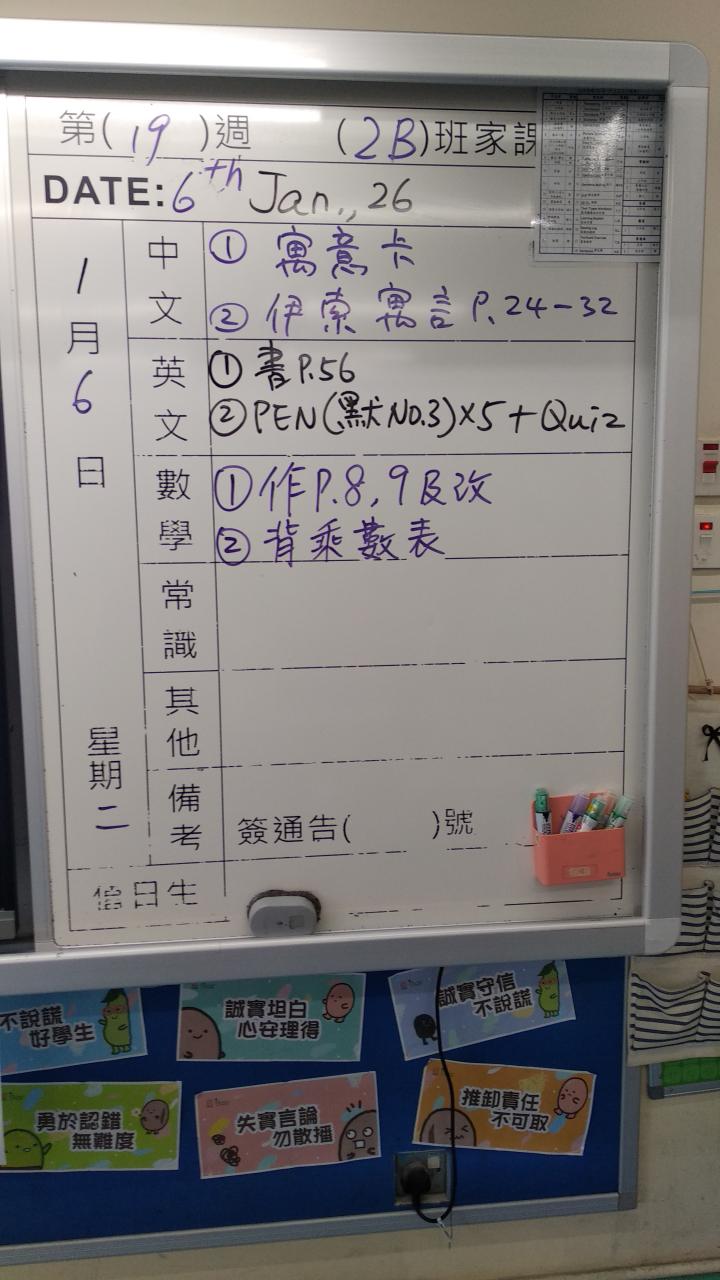 第(19)週 (2B)班家課
DATE: 6th Jan., 26
1月6日 星期二
中文
① 寓意卡
② 伊索寓言 P.24-32
英文
① 書P.56
② PEN(默NO.3)×5+Quiz
數學
① 作P.8,9及改
② 背乘數表
常識
其他
備考
簽通告( )號
值日生
不說謊
好學生
誠實坦白
心安理得
誠實守信
不說謊
勇於認錯
無難度
失實言論
勿散播
推卸責任
不可取